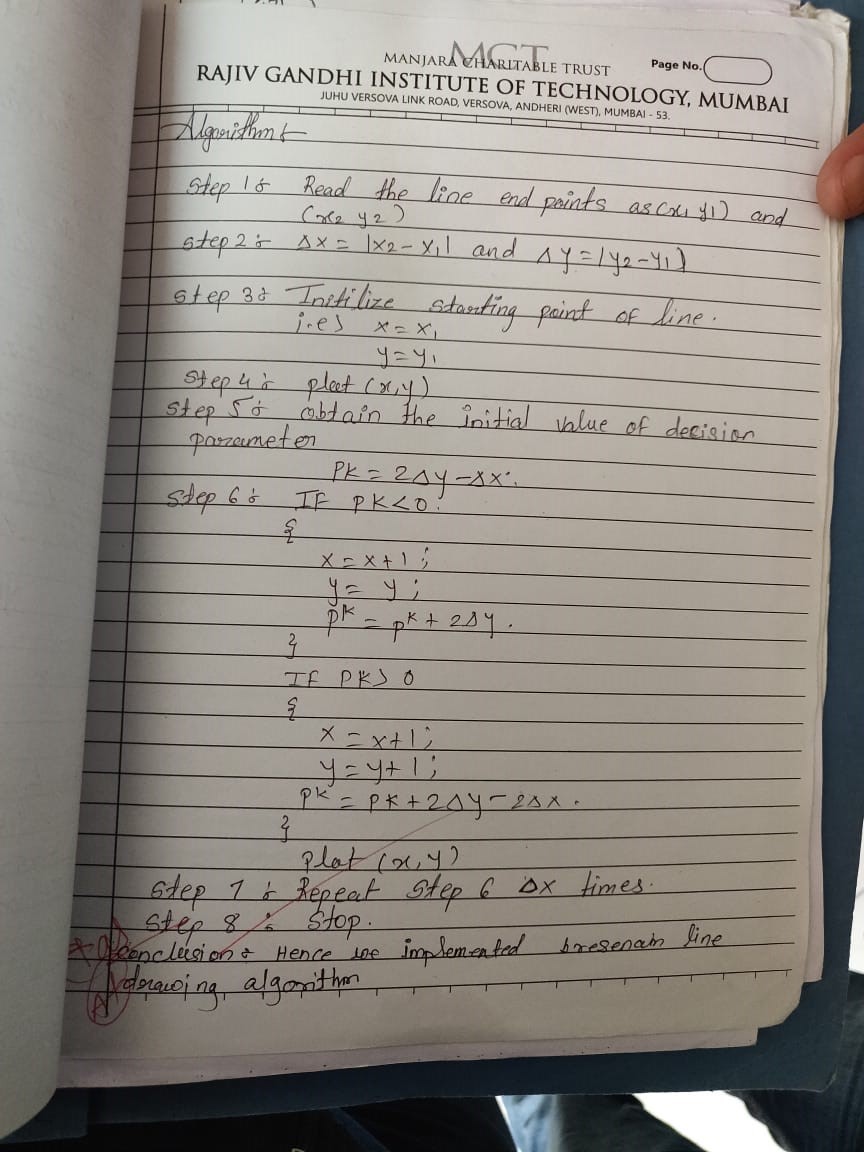 MCT
MANJARA CHARITABLE TRUST
Page No.
RAJIV GANDHI INSTITUTE OF TECHNOLOGY, MUMBAI
JUHU VERSOVA LINK ROAD, VERSOVA, ANDHERI (WEST), MUMBAI - 53.
Algorithm :-
Step 1 :- Read the line end points as (x1 y1) and
(x2 y2)
step 2 :- Δx = |x2 - x1| and Δy = |y2 - y1|
step 3 :- Initilize starting point of line.
i.e) x = x1
y = y1
Step 4 :- plot (x, y)
Step 5 :- obtain the initial value of decision
parameter
PK = 2Δy - Δx.
Step 6 :- IF PK < 0.
{
x = x + 1 ;
y = y ;
pk = pk + 2Δy .
}
IF PK > 0
{
x = x+1 ;
y = y+1 ;
pk = PK + 2Δy - 2Δx .
}
plot (x, y)
Step 7 :- Repeat Step 6 Δx times.
Step 8 :- Stop.
conclusion :- Hence we implemented bresenam line
drawing algorithm